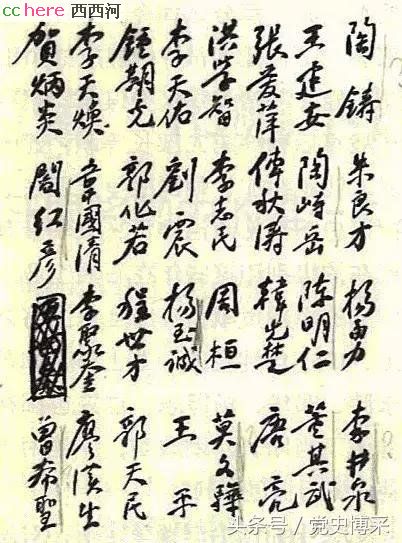 cchere 西西河
陶鑄 朱良才 楊勇 李井泉
王建安 陶峙岳 陳明仁 董其武
張愛萍 傅秋濤 韓先楚 唐亮
洪學智 李志民 周桓 莫文驊
李天佑 劉震 楊至誠 王平
鍾期光 郭化若 程世才 郭天民
李天煥 韋國清 李聚奎 廖漢生
賀炳炎 閻紅彥 曾希聖
头条号 / 党史博采